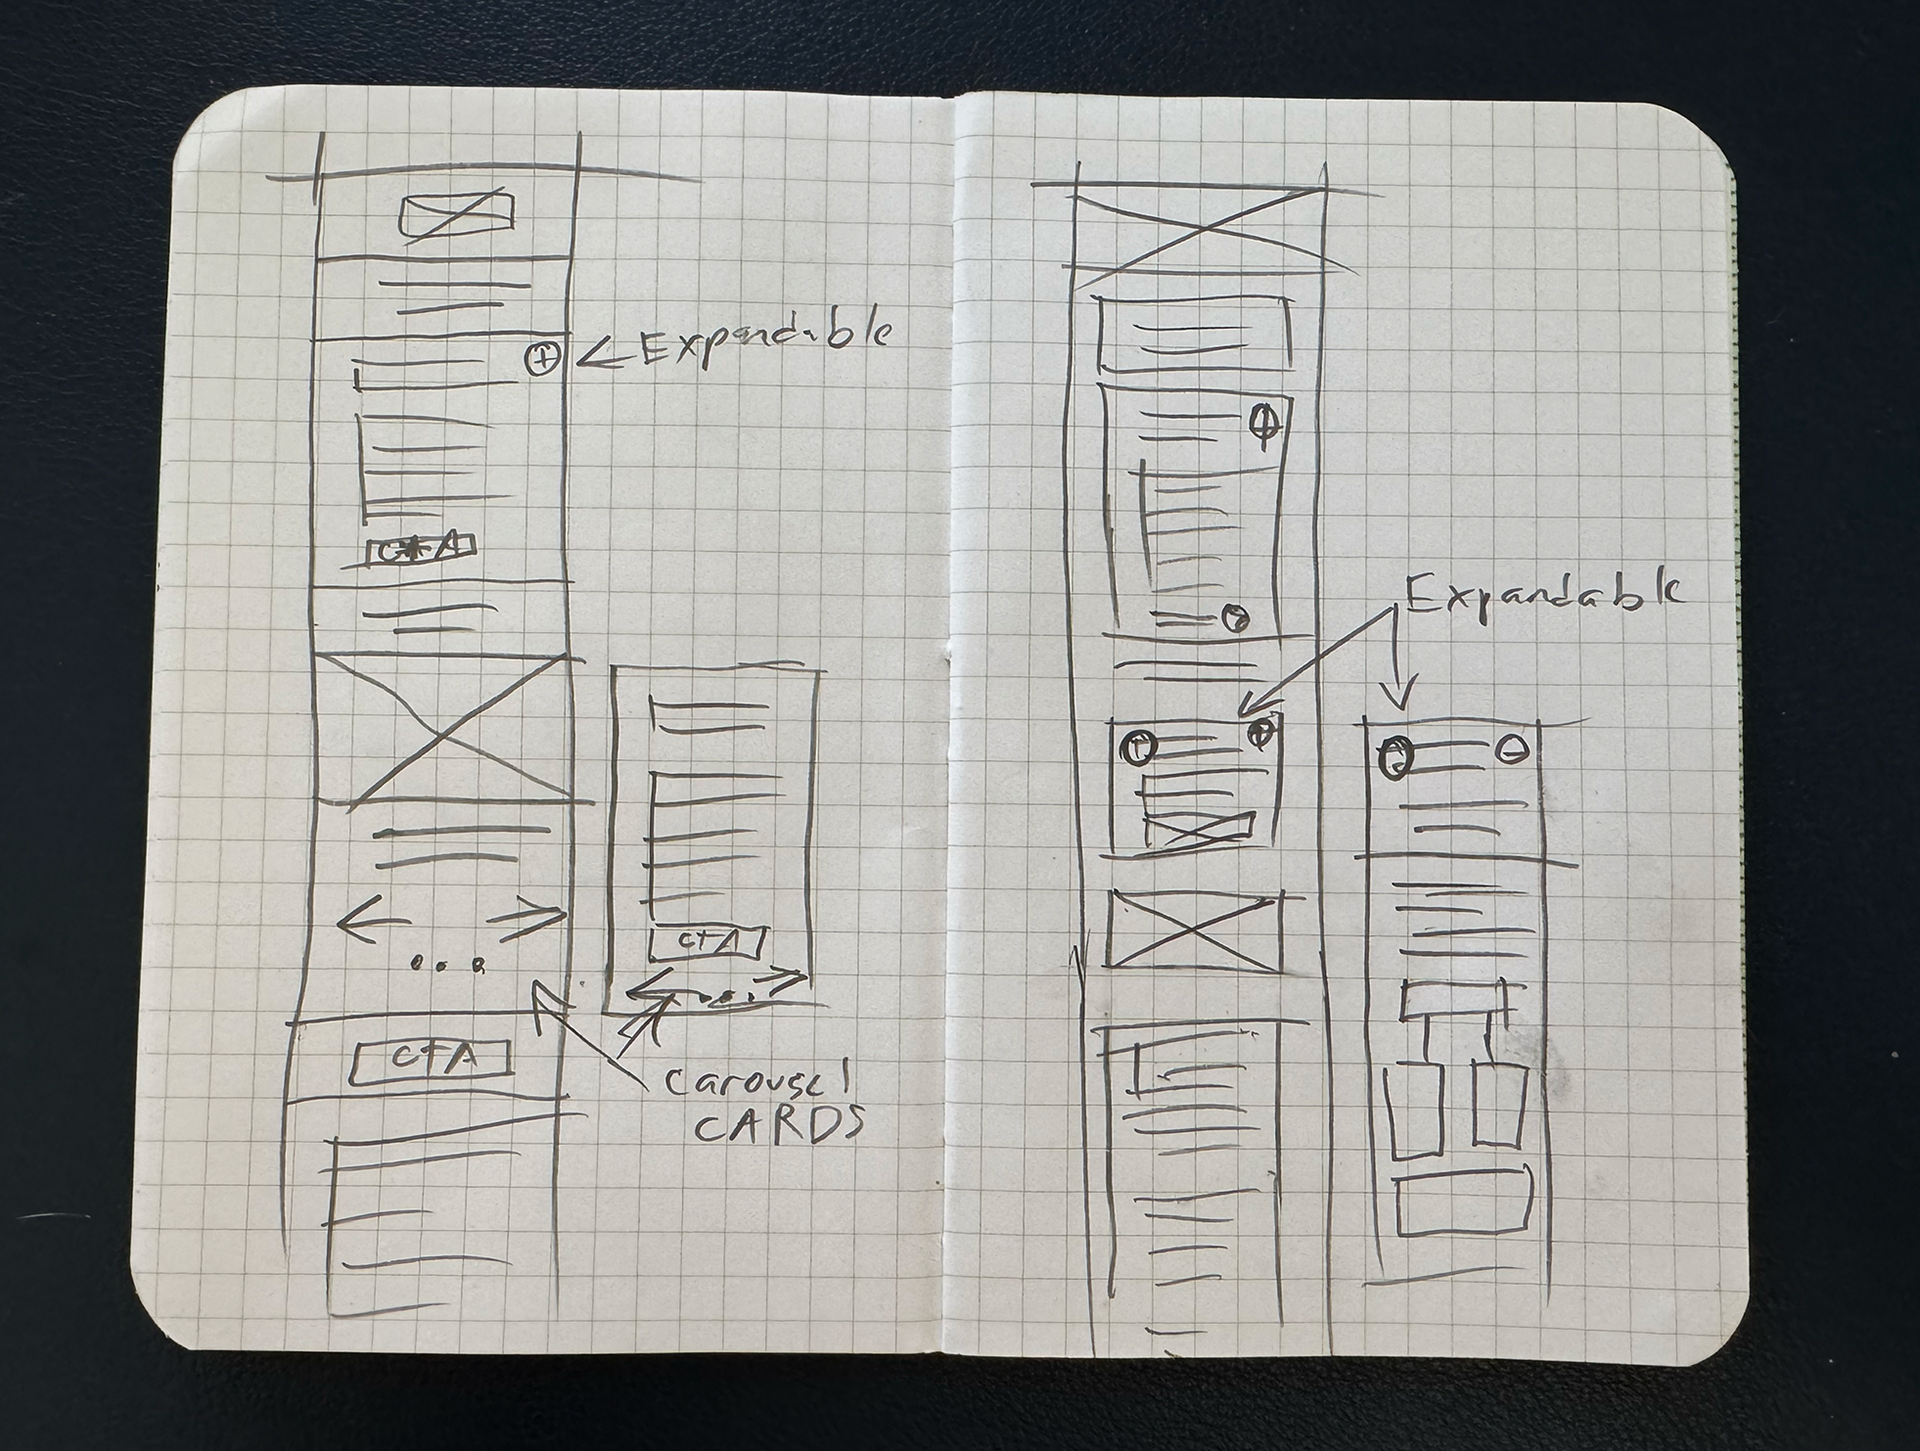 Expandable
CTA
CTA
CTA
Carousel
CARDS
Expandable